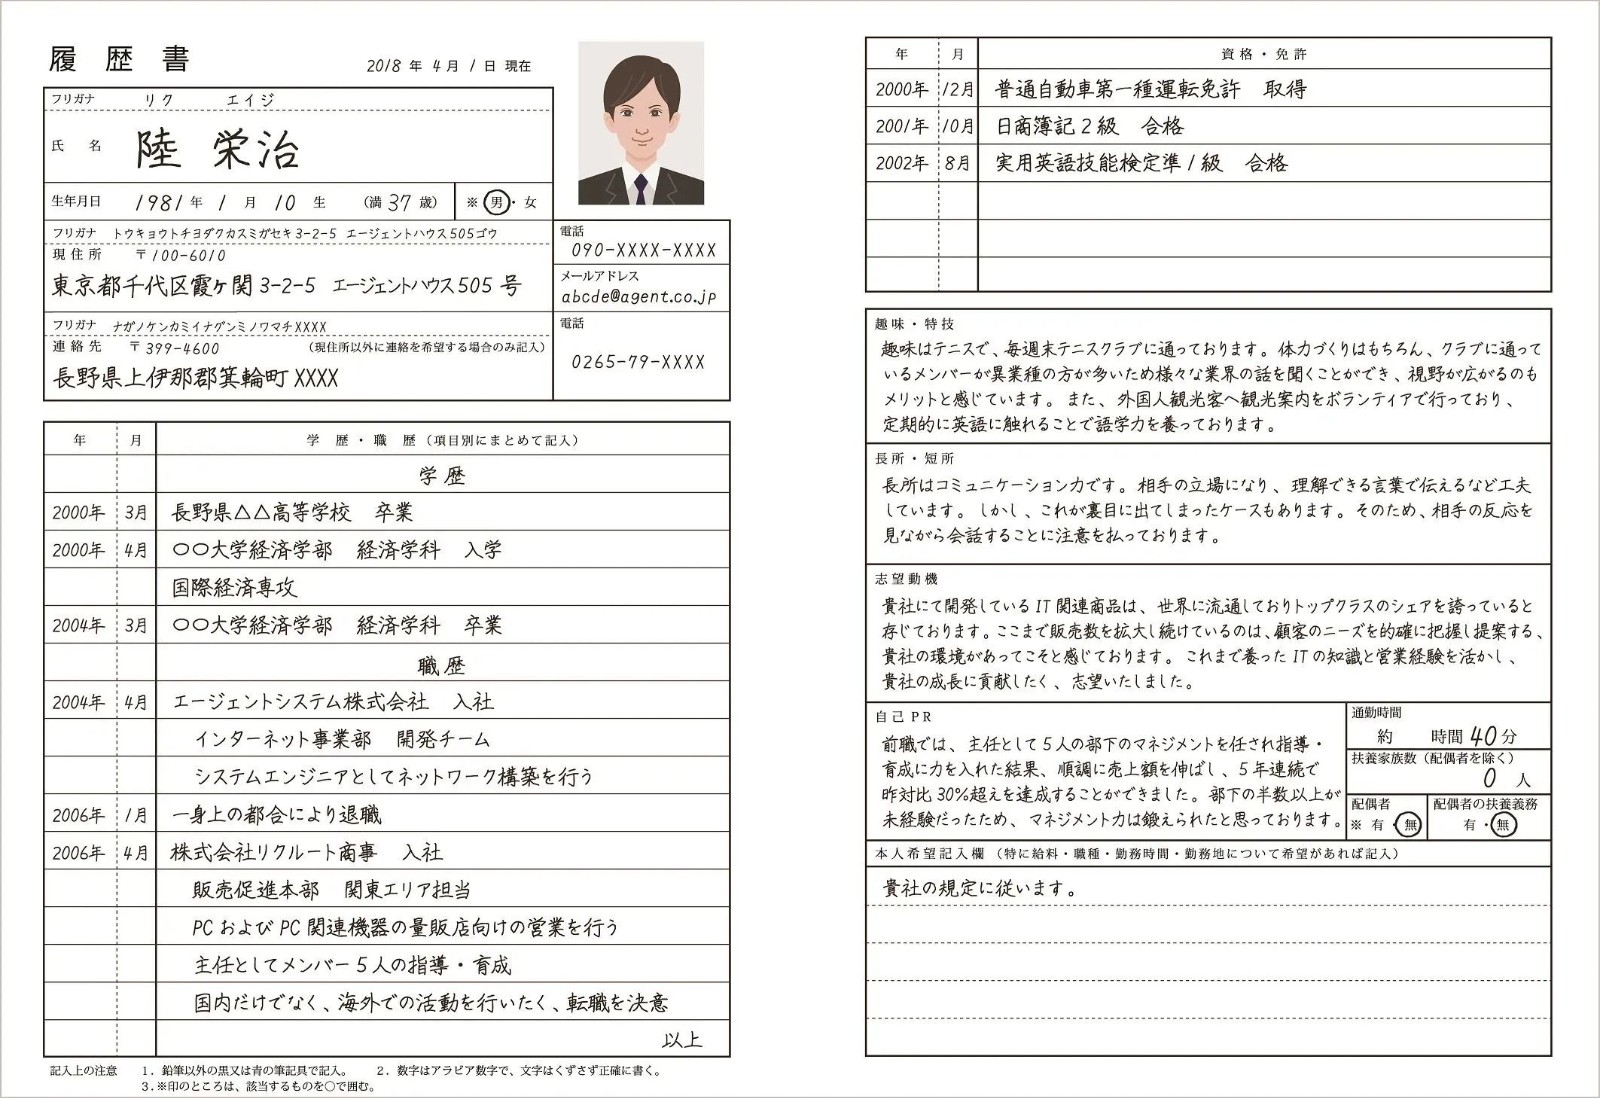 履歴書
2018 年 4 月 1 日 現在
フリガナ リク エイジ
氏 名 陸 栄治
生年月日 1981 年 1 月 10 生 (満 37 歳) ※ 男・女
フリガナ トウキョウトチヨダクカスミガセキ3-2-5 エージェントハウス505ゴウ
現住所 〒100-6010
東京都千代区霞ヶ関 3-2-5 エージェントハウス505 号
電話
090-XXXX-XXXX
メールアドレス
abcde@agent.co.jp
フリガナ ナガノケンカミイナグンミノワマチXXXX
連絡先 〒399-4600 (現住所以外に連絡を希望する場合のみ記入)
長野県上伊那郡箕輪町XXXX
電話
0265-79-XXXX
年 月 学 歴・職 歴(項目別にまとめて記入)
学歴
2000年 3月 長野県△△高等学校 卒業
2000年 4月 〇〇大学経済学部 経済学科 入学
国際経済専攻
2004年 3月 〇〇大学経済学部 経済学科 卒業
職歴
2004年 4月 エージェントシステム株式会社 入社
インターネット事業部 開発チーム
システムエンジニアとしてネットワーク構築を行う
2006年 1月 一身上の都合により退職
2006年 4月 株式会社リクルート商事 入社
販売促進本部 関東エリア担当
PCおよびPC関連機器の量販店向けの営業を行う
主任としてメンバー5人の指導・育成
国内だけでなく、海外での活動を行いたく、転職を決意
以上
記入上の注意 1.鉛筆以外の黒又は青の筆記具で記入。 2.数字はアラビア数字で、文字はくずさず正確に書く。
3.※印のところは、該当するものを○で囲む。
年 月 資格・免許
2000年 12月 普通自動車第一種運転免許 取得
2001年 10月 日商簿記2級 合格
2002年 8月 実用英語技能検定準1級 合格
趣味・特技
趣味はテニスで、毎週末テニスクラブに通っております。体力づくりはもちろん、クラブに通って
いるメンバーが異業種の方が多いため様々な業界の話を聞くことができ、視野が広がるのも
メリットと感じています。また、外国人観光客へ観光案内をボランティアで行っており、
定期的に英語に触れることで語学力を養っております。
長所・短所
長所はコミュニケーション力です。相手の立場になり、理解できる言葉で伝えるなど工夫
しています。しかし、これが裏目に出てしまったケースもあります。そのため、相手の反応を
見ながら会話することに注意を払っております。
志望動機
貴社にて開発しているIT関連商品は、世界に流通しておりトップクラスのシェアを誇っていると
存じております。ここまで販売数を拡大し続けているのは、顧客のニーズを的確に把握し提案する、
貴社の環境があってこそと感じております。これまで養ったITの知識と営業経験を活かし、
貴社の成長に貢献したく、志望いたしました。
自己PR
前職では、主任として5人の部下のマネジメントを任され指導・
育成に力を入れた結果、順調に売上額を伸ばし、5年連続で
昨対比30%超えを達成することができました。部下の半数以上が
未経験だったため、マネジメント力は鍛えられたと思っております。
通勤時間
約 時間 40分
扶養家族数(配偶者を除く)
0 人
配偶者
※ 有・無
配偶者の扶養義務
有・無
本人希望記入欄 (特に給料・職種・勤務時間・勤務地について希望があれば記入)
貴社の規定に従います。